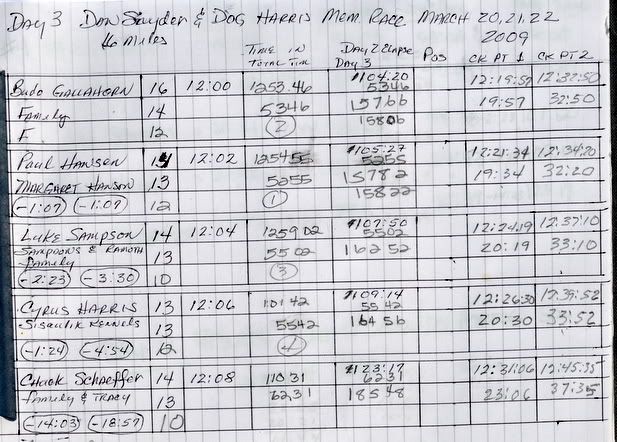 DAY 3 DAN Snyder & DOG HARRIS MEM. RACE MARCH 20,21,22
16 MILES 2009
TIME IN DAY 2 Elapse Pos CK PT 1 CK PT 2
TOTAL TIM DAY 3
Budo GALLAHORN 16 12:00 1253.46 1104:20 12:19:57 12:32:50
5346
Family 14 5346 15766 19:57 32:50
F 12 (2) 15806
Paul Hansen 14 12:02 125455 1105:27 12:21:34 12:34:20
5255
MARGARET HANSON 13 5255 15782 19:34 32:20
(-1:07) (-1:07) 12 (1) 15822
Luke Sampson 14 12:04 1259 02 1107:50 12:24:19 12:37:10
5502
SAMPSON'S & RAMOTH 13 55 02 16252 20:19 33:10
Family
(-2:23) (-3:30) 10 (3)
CYRUS HARRIS 13 12:06 10142 1109:14 12:26:30 12:39:52
5542
Sisaulik Kennels 13 5542 164 56 20:30 33:52
(-1:24) (-4:54) 12 (4)
Chuck Schaeffer 14 12:08 110 31 1123:17 12:31:06 12:45:35
6231
family & Tracy 13 6231 18548 23:06 37:35
(-14:03) (-18:57) 10